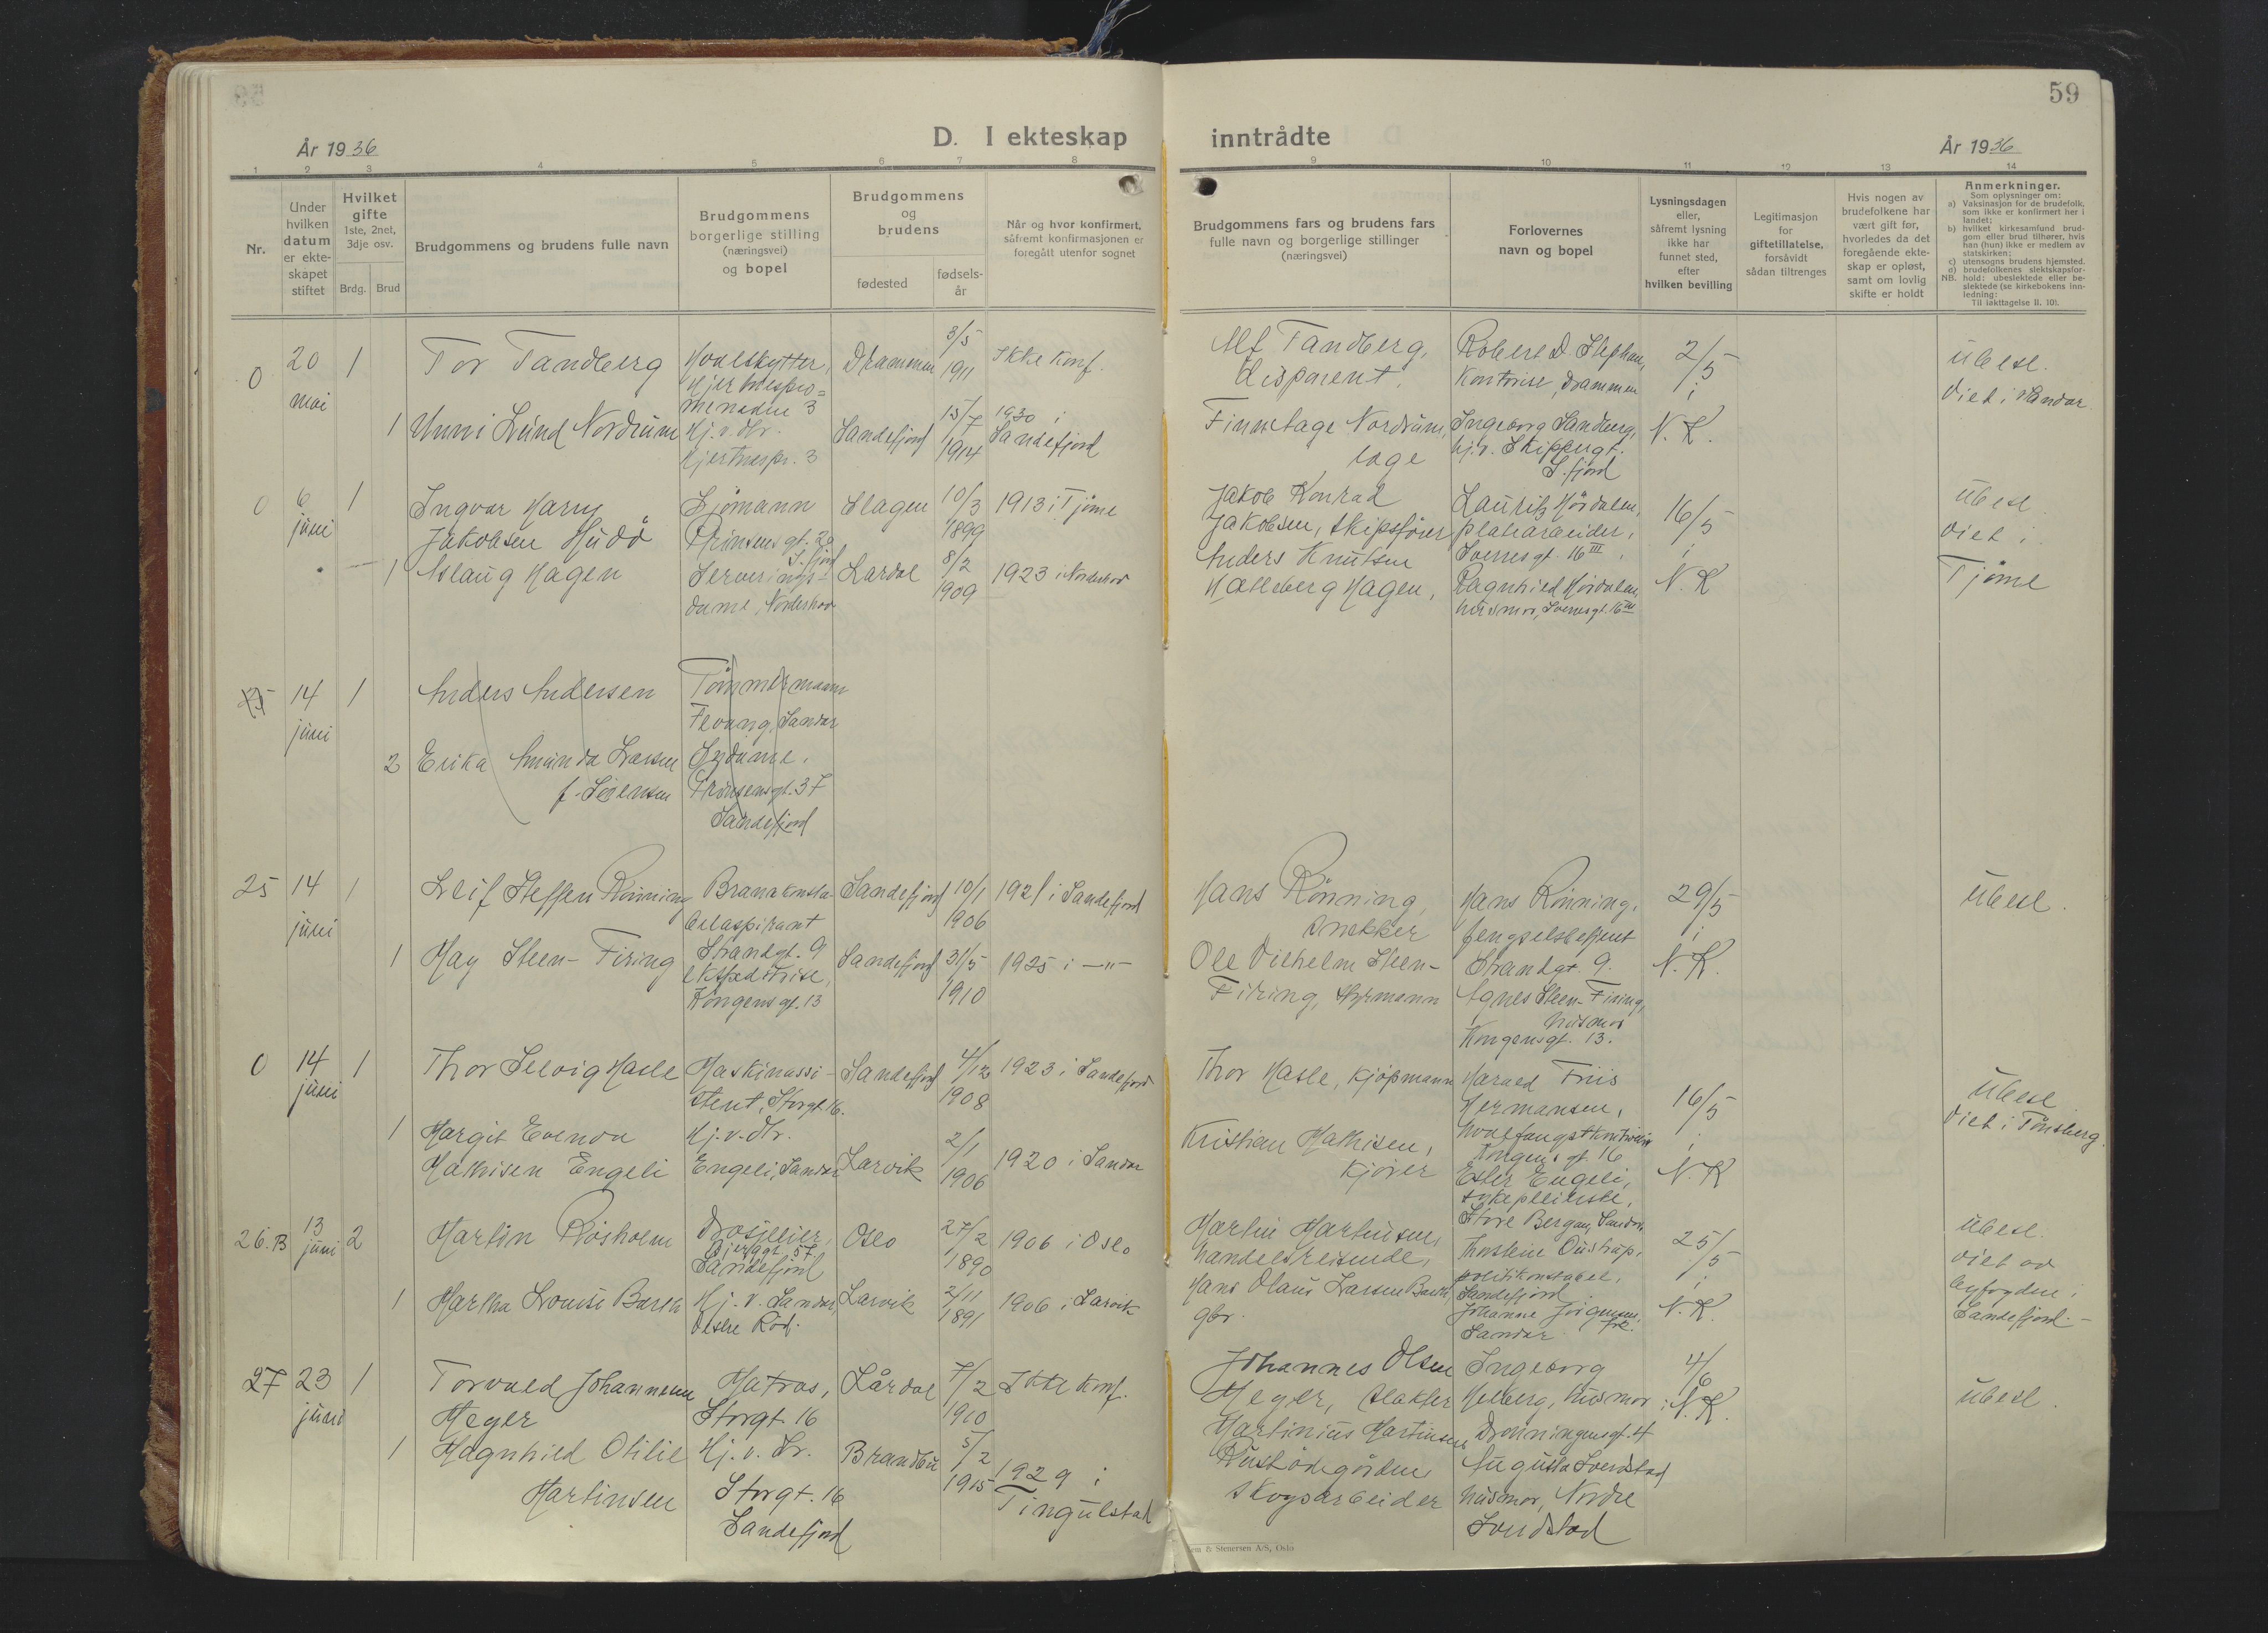 59
D. I ekteskap inntrådte
År 1936
År 1936
1 2 3 4 5 6 7 8 9 10 11 12 13 14
Nr.
Under
hvilken
datum
er ekte-
skapet
stiftet
Hvilket
gifte
1ste, 2net,
3dje osv.
Brdg. Brud
Brudgommens og brudens fulle navn
Brudgommens
borgerlige stilling
(næringsvei)
og bopel
Brudgommens
og
brudens
fødested
fødsels-
år
Når og hvor konfirmert,
såfremt konfirmasjonen er
foregått utenfor sognet
Brudgommens fars og brudens fars
fulle navn og borgerlige stillinger
(næringsvei)
Forlovernes
navn og bopel
Lysningsdagen
eller,
såfremt lysning
ikke har
funnet sted,
efter
hvilken bevilling
Legitimasjon
for
giftetillatelse,
forsåvidt
sådan tiltrenges
Hvis nogen av
brudefolkene har
vært gift før,
hvorledes da det
foregående ekte-
skap er opløst,
samt om lovlig
skifte er holdt
Anmerkninger.
Som oplysninger om:
a) Vaksinasjon for de brudefolk,
som ikke er konfirmert her i
landet;
b) hvilket kirkesamfund brud-
gom eller brud tilhører, hvis
han (hun) ikke er medlem av
statskirken;
c) utensogns brudens hjemsted.
d) brudefolkenes slektskapsfor-
NB. hold: ubeslektede eller be-
slektede (se kirkebokens inn-
ledning:
Til iakttagelse II. 10).
0
20
mai
1
Tor Tandberg
Hvalskytter,
Hjertnespro=
menaden 3
Drammen
3/5
1911
Ikke konf.
Alf Tandberg,
disponent.
Robert D. Stephan,
Kontorist, Drammen
2/5
i
N. K.
ubesl.
viet i Sandar.
1
Unni Lund Nordrum
Hj. v. Mor.
Hjertnespr. 3
Sandefjord
15/7
1914
1930 i
Sandefjord
Finn Aage Nordrum,
læge
Ingeborg Sandberg,
hj.v. Skippergt.
S.fjord
0
6
juni
1
Ingvar Harry
Jakobsen Hudø
Sjømann
Prinsensgt. 20
S.fjord
Slagen
10/3
1899
1913 i Tjøme
Jakob Konrad
Jakobsen, skipsfører
Lauritz Hørdalen,
platearbeider,
Sverresgt. 16 III.
16/5
i
N. K
ubesl.
viet i
Tjøme
1
Aslaug Hagen
Serverings-
dame, Norderhov
Lardal
8/2
1909
1923 i Norderhov
Anders Knutsen
Hælleberg Hagen,
Ragnhild Hørdalen,
husmor, Sverresgt. 16 III
25
14
juni
1
Anders Andersen
Tømmermann
Fevang, Sandar
2
Erika Amanda Larsen
f. Sørensen
Sydame.
Prinsensgt. 37
Sandefjord
25
14
juni
1
Leif Steffen Rønning
Brannkonsta-
belaspirant
Strandgt. 9
Sandefjord
10/1
1906
1921 i Sandefjord
Hans Rønning,
snekker
Hans Rønning,
fengselsbetjent
Strandgt. 9.
29/5
i
N. K.
ubesl.
1
May Steen-Firing
ekspeditrise,
Kongensgt. 13
Sandefjord
31/5
1910
1925 i —"—
Ole Vilhelm Steen-
Firing, styrmann
Agnes Steen-Firing,
husmor
Kongensgt. 13.
0
14
juni
1
Thor Selvig Hasle
Maskinassi-
stent, Storgt. 16.
Sandefjord
4/12
1908
1923 i Sandefjord
Thor Hasle, kjøpmann
Harald Friis
Hermansen,
hvalfangstkontrollør
Kongensgt. 16
16/5
i
N. K
ubesl
viet i Tønsberg.
1
Margit Evenda
Mathisen Engeli
Hj. v. Mr.
Engeli, Sandar
Larvik
2/1
1906
1920 i Sandar
Kristian Mathisen,
kjører
Ester Engeli,
sykepleierske,
Store Bergan, Sandar.
26. B
13
juni
2
Martin Røsholm
Drosjeeier,
Bjerggt. 57.
Sandefjord
Oslo
27/2
1890
1906 i Oslo
Martin Martinsen,
handelsreisende,
Thorstein Oustrup,
politikonstabel,
Sandefjord
25/5
i
N. K.
ubesl.
viet av
byfogden i
Sandefjord. —
1
Martha Lovise Barth
Hj. v. Sandar,
Vestre Rød.
Larvik
2/11
1891
1906 i Larvik
Hans Olaus Larsen Barth,
gbr.
Johanne Jørgensen,
frk.
Sandar
27
23
juni
1
Torvald Johannesen
Meyer
Matros,
Storgt. 16
Lårdal
7/2
1910
Ikke konf.
Johannes Olsen
Meyer, slakter
Ingeborg
Melberg, husmor
Dronningensgt. 4
4/6
i N. K.
ubesl.
1
Magnhild Otilie
Martinsen
Hj. v. Sr.
Storgt. 16
Sandefjord
Brandbu
5/2
1915
1929 i
Tingelstad
Martinius Martinsen
Rustødegården
skogsarbeider
Augusta Svendstad
husmor, Nordre
Svendstad
& Stenersen A/S, Oslo